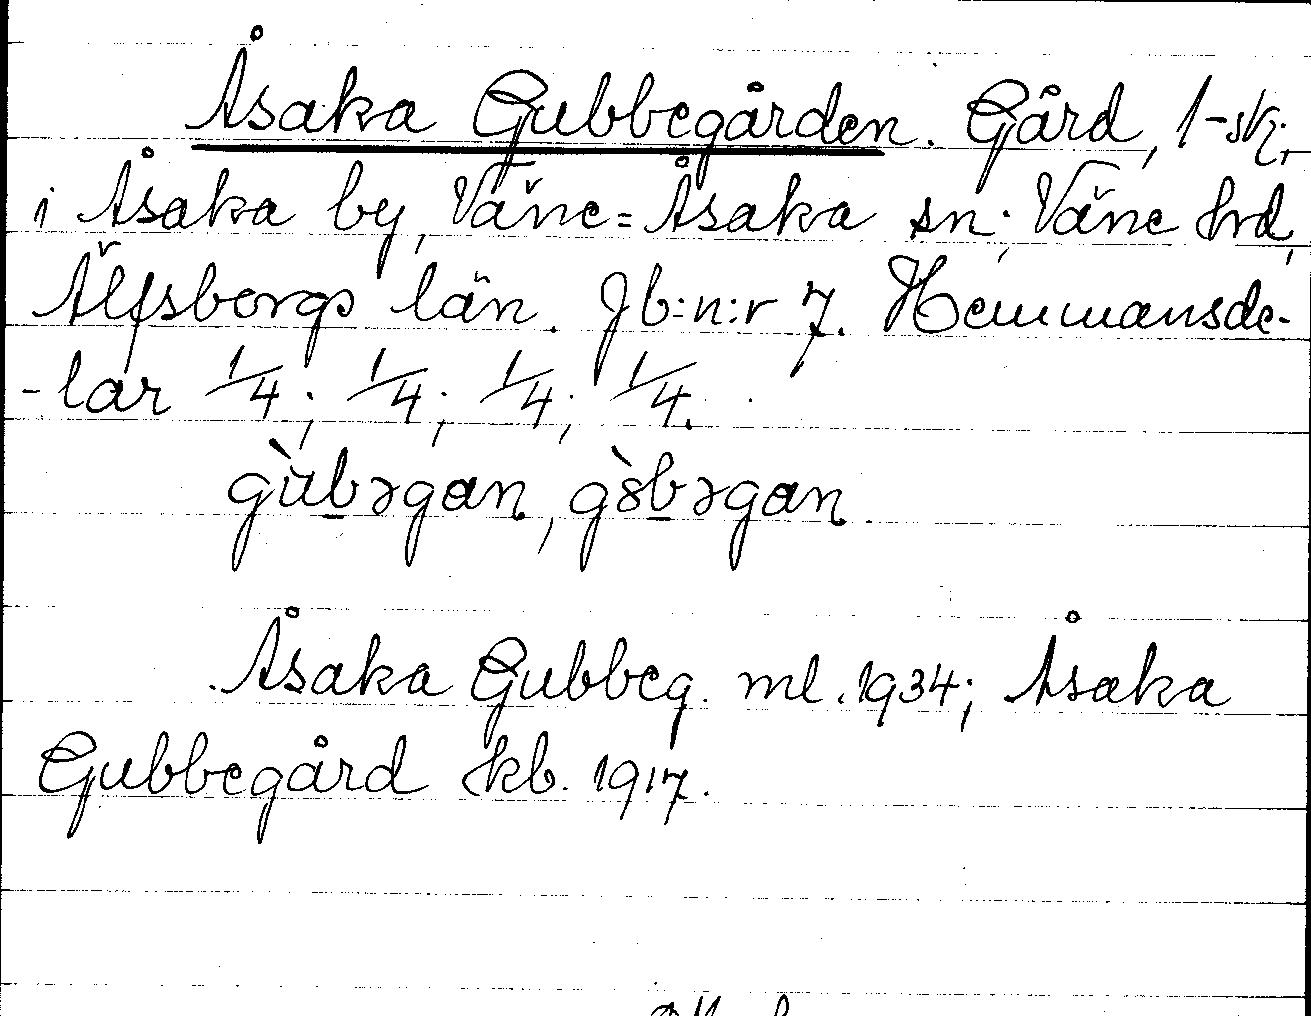 Åsaka Gubbegården. Gård, 1-skj.,
i Åsaka by, Väne=Åsaka sn; Väne hrd,
Älfsborgs län. Jb:n:r 7. Hemmansde-
-lar 1/4; 1/4; 1/4; 1/4.
gùbəgan, gòbəgan.
Åsaka Gubbeg. ml. 1934; Åsaka
Gubbegård kb. 1917.